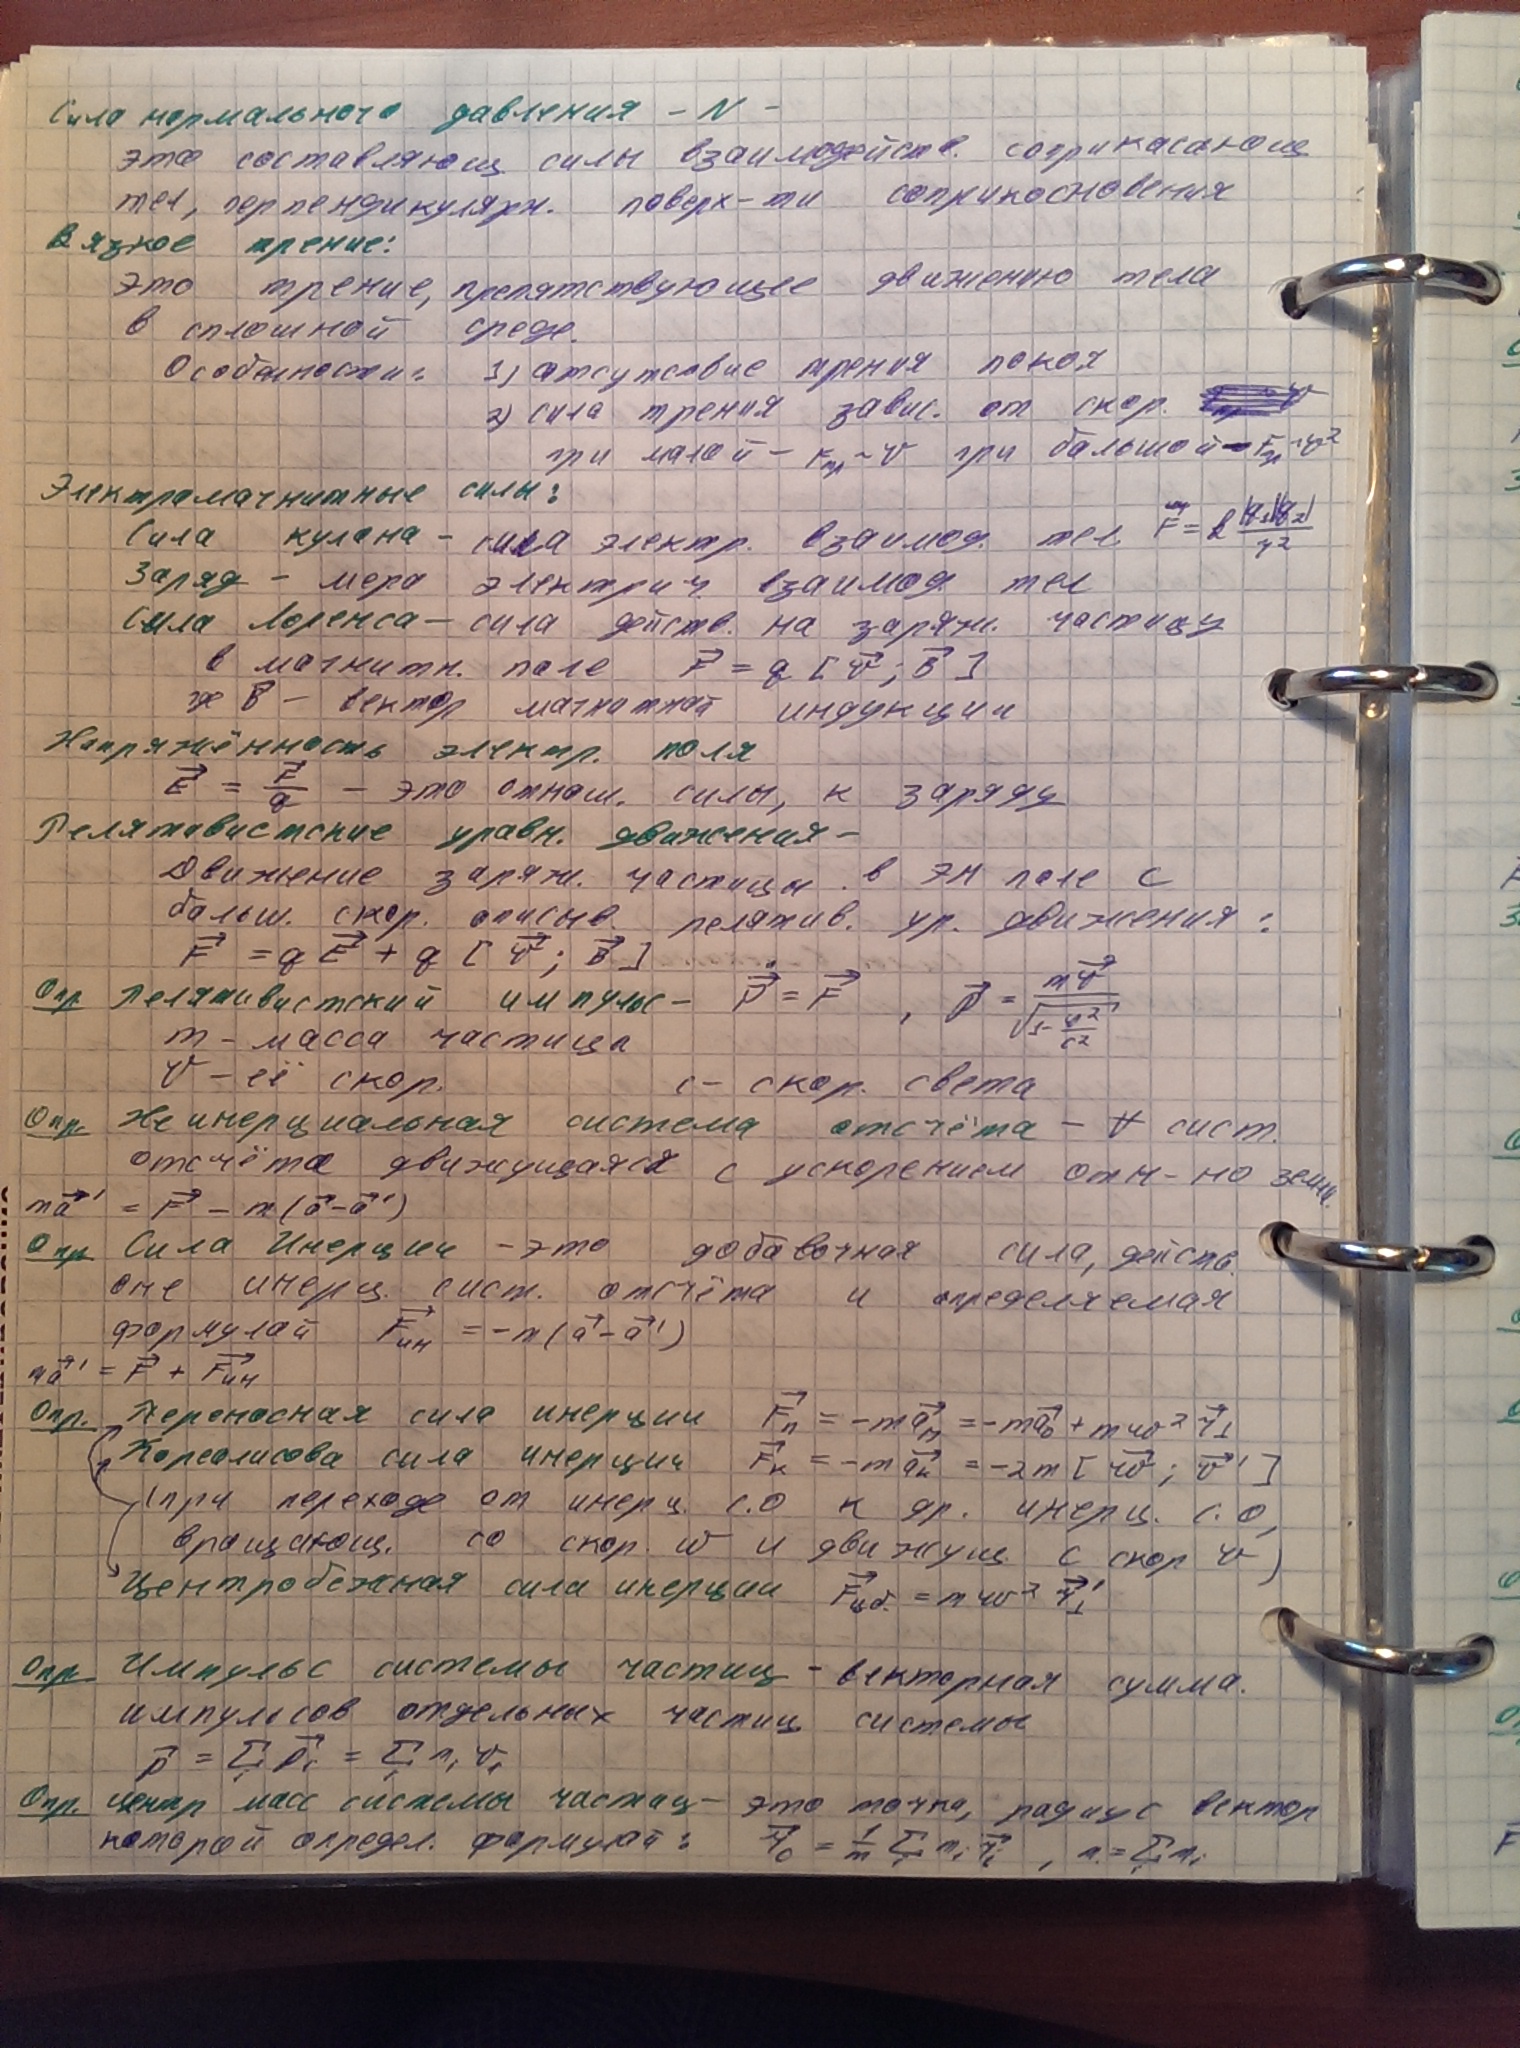 Сила нормального давления - N -
это составляющ силы взаимодейств. соприкасающ
тел, перпендикулярн. поверх-ти соприкосновения
Вязкое трение:
Это трение, препятствующее движению тела
в сплошной среде.
Особенности: 1) отсутствие трения покоя
2) сила трения завис. от скор.
при малой - Fтр ~ v при большой - Fтр ~ v²
Электромагнитные силы:
Сила кулона - сила электр. взаимод. тел. F⃗ = k |q₁||q₂| / r²
Заряд - мера электрич взаимод. тел
Сила Лоренса - сила действ. на заряж. частицу
в магнитн. поле F⃗ = q [v⃗ ; B⃗]
где B⃗ - вектор магнитной индукции
Напряжённость электр. поля
E⃗ = F⃗/q - это отнош. силы, к заряду
Релятивистские уравн. движения -
Движение заряж. частицы в ЭМ поле с
больш. скор. описыв. релятив. ур. движения:
F⃗ = qE⃗ + q [v⃗ ; B⃗]
Опр Релятивистский импульс - ṗ⃗ = F⃗ , p⃗ = mv⃗ / √(1 - v²/c²)
m - масса частицы
v - её скор. c - скор. света
Опр. Неинерциальная система отсчёта - ∀ сист.
отсчёта движущаяся с ускорением отн-но земли.
ma⃗' = F⃗ - m(a⃗ - a⃗')
Опр Сила Инерции - это добавочная сила, действ.
в не инерц. сист. отсчёта и определяемая
формулой F⃗ин = -m(a⃗ - a⃗')
ma⃗' = F⃗ + F⃗ин
Опр. Переносная сила инерции F⃗п = -ma⃗п = -ma⃗₀ + mω² r⃗⊥
Кореолисова сила инерции F⃗к = -ma⃗к = -2m [ω⃗ ; v⃗']
(при переходе от инерц. с.о к др. инерц. с.о,
вращающ. со скор. ω и движущ. с скор v)
Центробежная сила инерции F⃗цб. = mω² r⃗⊥'
Опр. Импульс системы частиц - векторная сумма.
импульсов отдельных частиц системы
p⃗ = Σᵢ p⃗ᵢ = Σᵢ mᵢ vᵢ
Опр. Центр масс системы частиц - это точка, радиус вектор
которой определ. формулой: r⃗₀ = 1/m Σᵢ mᵢ r⃗ᵢ , m = Σᵢ mᵢ